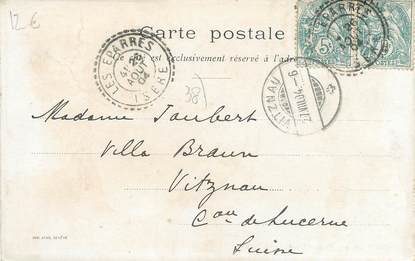 12€
Carte postale
Ce côté est exclusivement réservé à l'adresse
LES EPARRES
25
AOUT
04
ISÈRE
5c
38)
VITZNAU
27.VIII.04.-6
Madame Joubert
Villa Braun
Vitznau
Con de Lucerne
Suisse